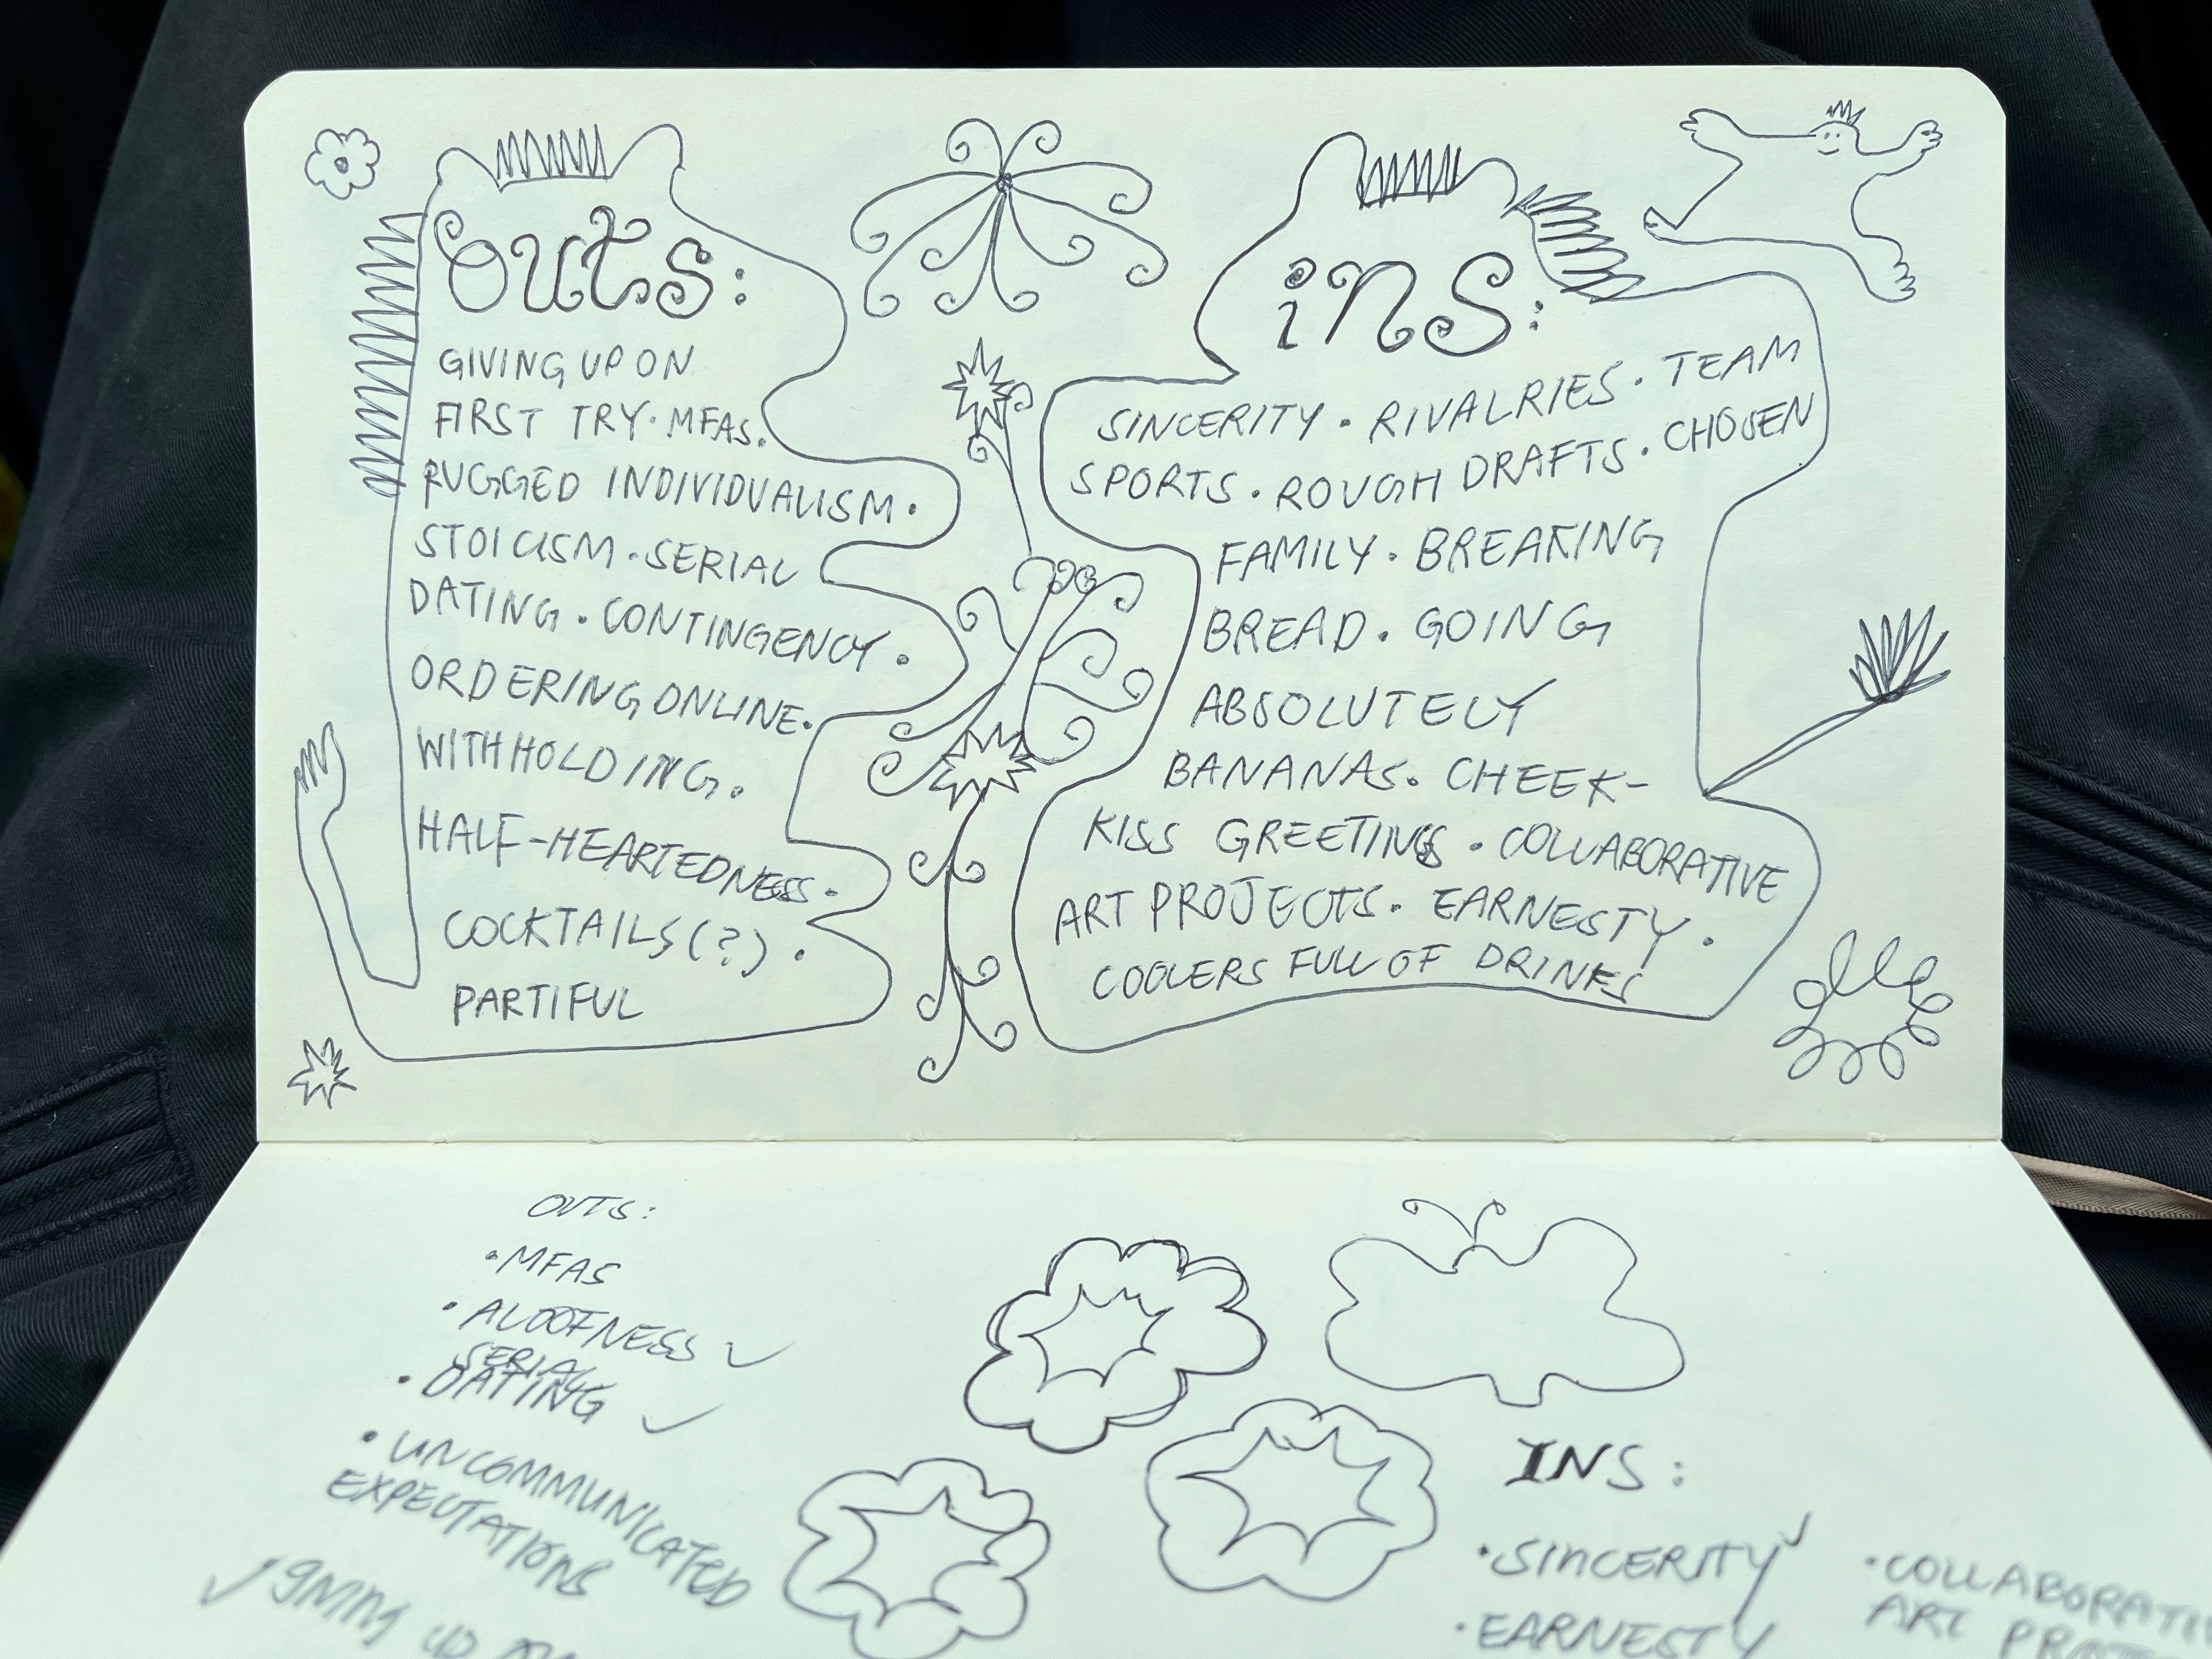 outs:
GIVING UP ON
FIRST TRY · MFAS.
RUGGED INDIVIDUALISM ·
STOICISM · SERIAL
DATING · CONTINGENCY ·
ORDERING ONLINE.
WITHHOLDING.
HALF-HEARTEDNESS ·
COCKTAILS (?) ·
PARTIFUL
ins:
SINCERITY · RIVALRIES · TEAM
SPORTS · ROUGH DRAFTS · CHOSEN
FAMILY · BREAKING
BREAD · GOING
ABSOLUTELY
BANANAS. CHEEK-
KISS GREETINGS · COLLABORATIVE
ART PROJECTS. EARNESTY ·
COOLERS FULL OF DRINKS
OUTS:
• MFAS
• ALOOFNESS ✓
SERIAL
• DATING ✓
• UNCOMMUNICATED
EXPECTATIONS
✓ giving up
INS:
• SINCERITY ✓
• EARNESTY
• COLLABORATI
ART